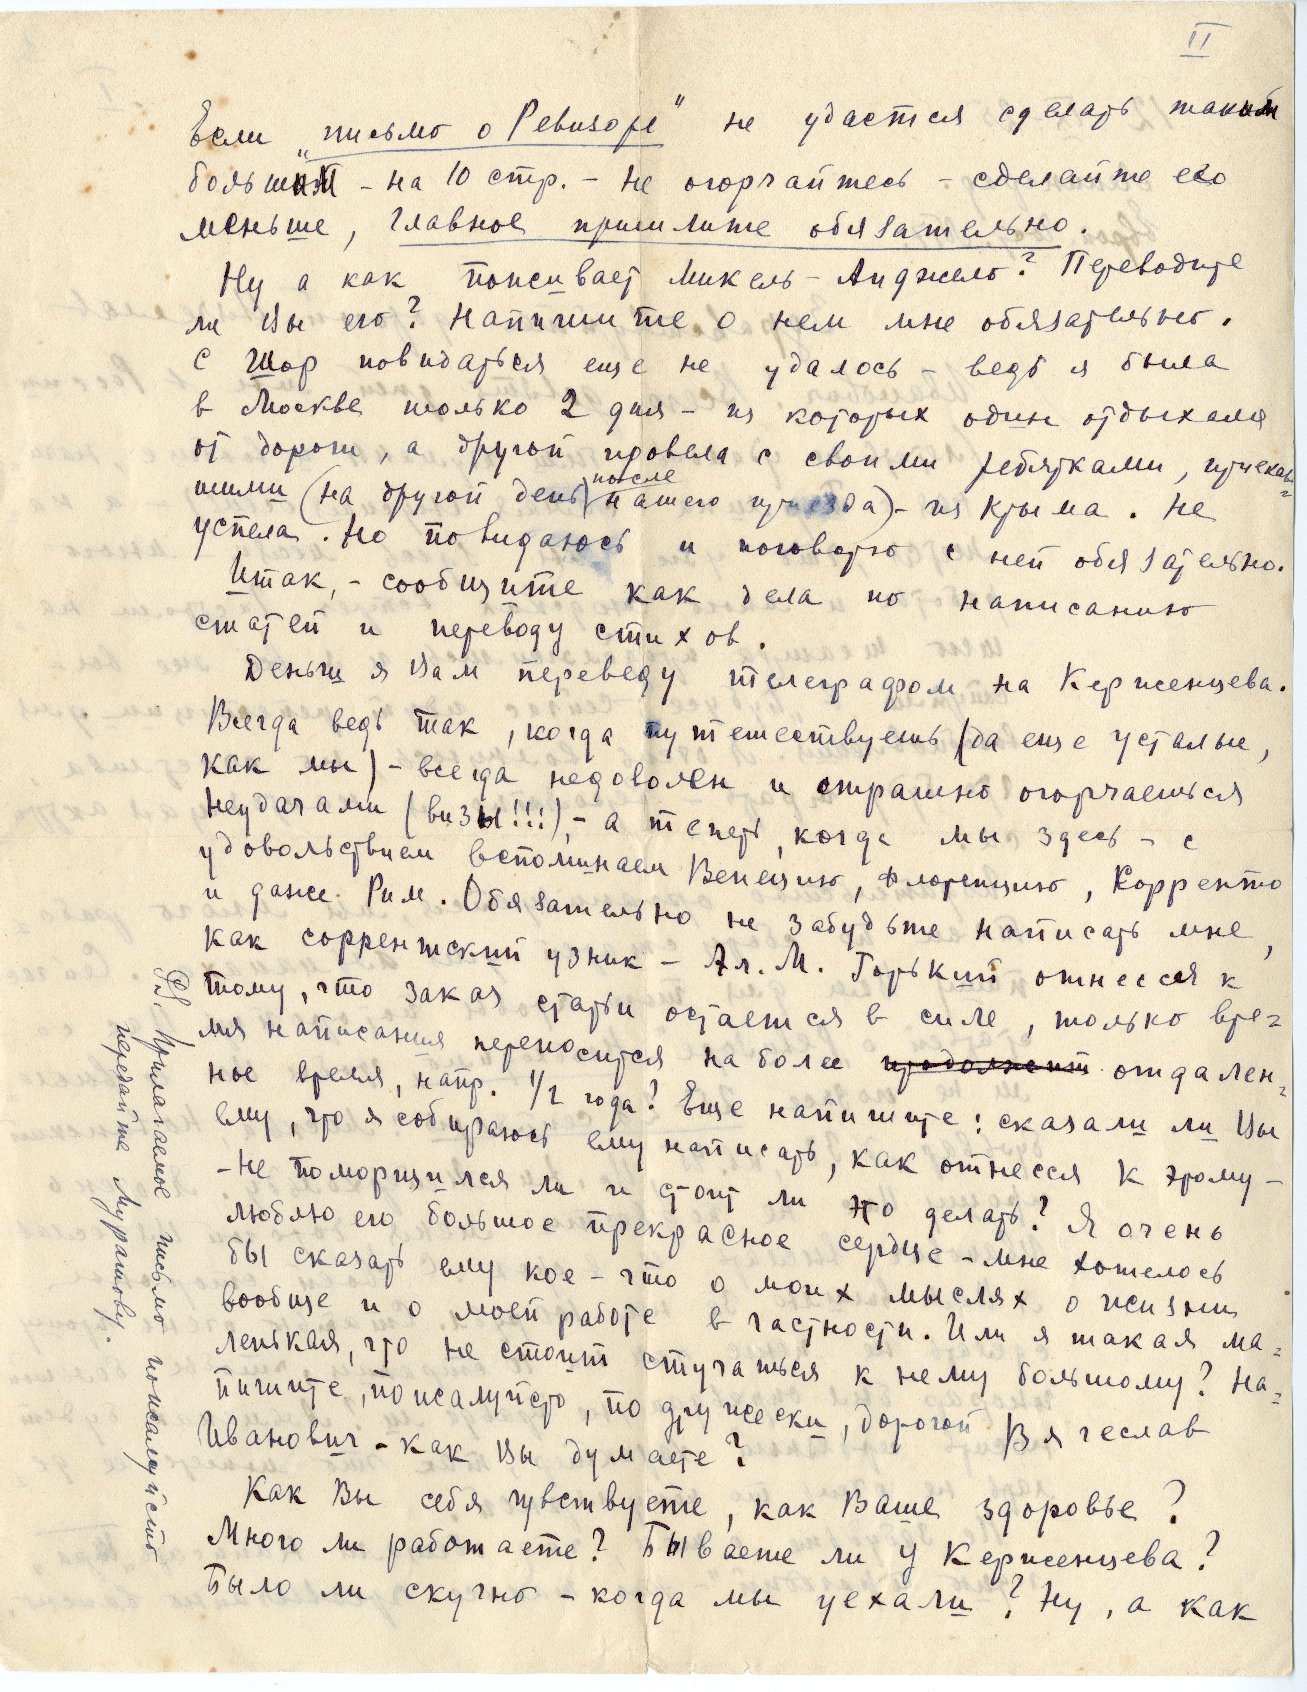 II
Если „письмо о Ревизоре" не удастся сделать таким
большим – на 10 стр. – не огорчайтесь – сделайте его
меньше, главное пришлите обязательно.
Ну а как поживает Микель-Анджело? Переводите
ли Вы его? Напишите о нем мне обязательно.
С Шор повидаться еще не удалось – ведь я была
в Москве только 2 дня – из которых один отдыхала
от дороги, а другой провела с своими ребятками, приехав=
шими (на другой день после нашего приезда) – из Крыма. Не
успела. Но повидаюсь и поговорю с ней обязательно.
Итак, – сообщите как дела по написанию
статей и переводу стихов.
Деньги я Вам переведу телеграфом на Керженцева.
Всегда ведь так, когда путешествуешь (да еще усталые,
как мы) – всегда недоволен и страшно огорчаешься
неудачами (визы!!!), – а теперь, когда мы здесь – с
удовольствием вспоминаем Венецию, Флоренцию, Сорренто
и даже Рим. Обязательно не забудьте написать мне,
как соррентский узник – Ал. М. Горький отнесся к
тому, что заказ статьи остается в силе, только вре=
мя написания переносится на более продолжит отдален=
ное время, напр. 1/2 года? Еще напишите: сказали ли Вы
ему, что я собираюсь ему написать, как отнесся к этому –
– не поморщился ли и стоит ли это делать? Я очень
люблю его большое прекрасное сердце – мне хотелось
бы сказать ему кое-что о моих мыслях о жизни
вообще и о моей работе в частности. Или я такая ма=
ленькая, что не стоит стучаться к нему большому? На=
пишите, пожалуйста, по дружески, дорогой Вячеслав
Иванович – как Вы думаете?
Как Вы себя чувствуете, как Ваше здоровье?
Много ли работаете? Бываете ли у Керженцева?
Было ли скучно – когда мы уехали? Ну, а как
Прилагаемое письмо пожалуйста
передайте Муратову.